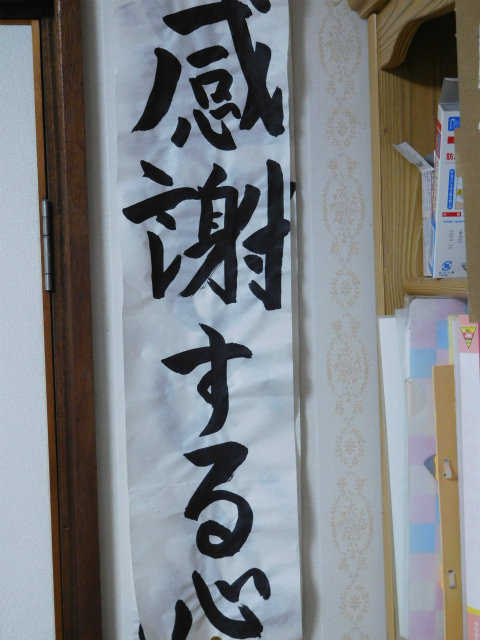 感謝する心